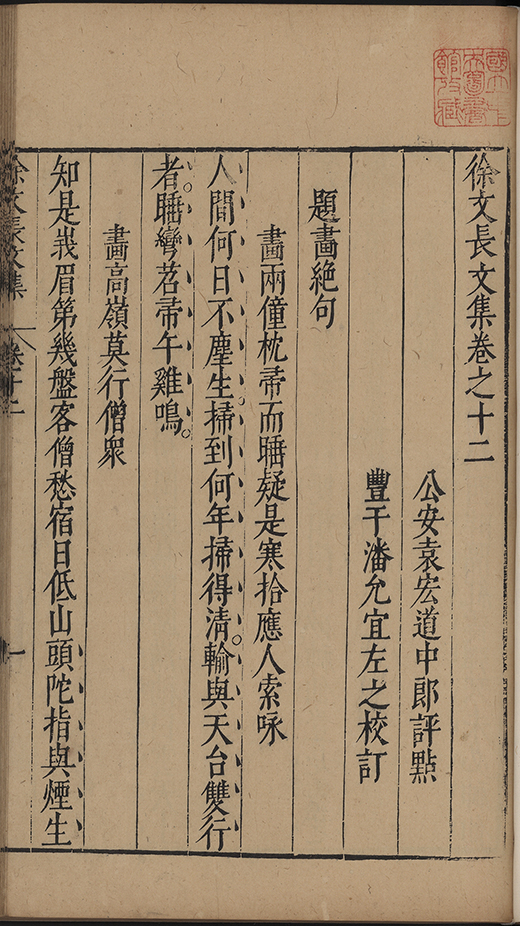 徐文長文集卷之十二
公安袁宏道中郎評點
豐干潘允宜左之校訂
題畫絶句
畫兩僮枕帚而睡疑是寒拾應人索咏
人間何日不塵生掃到何年掃得清。輸與天台雙行
者。睡彎苕帚午雞鳴。
畫高嶺莫行僧眾
知是峩眉第幾盤客僧愁宿日低山頭陀指與煙生
徐文長文集
卷十二
一